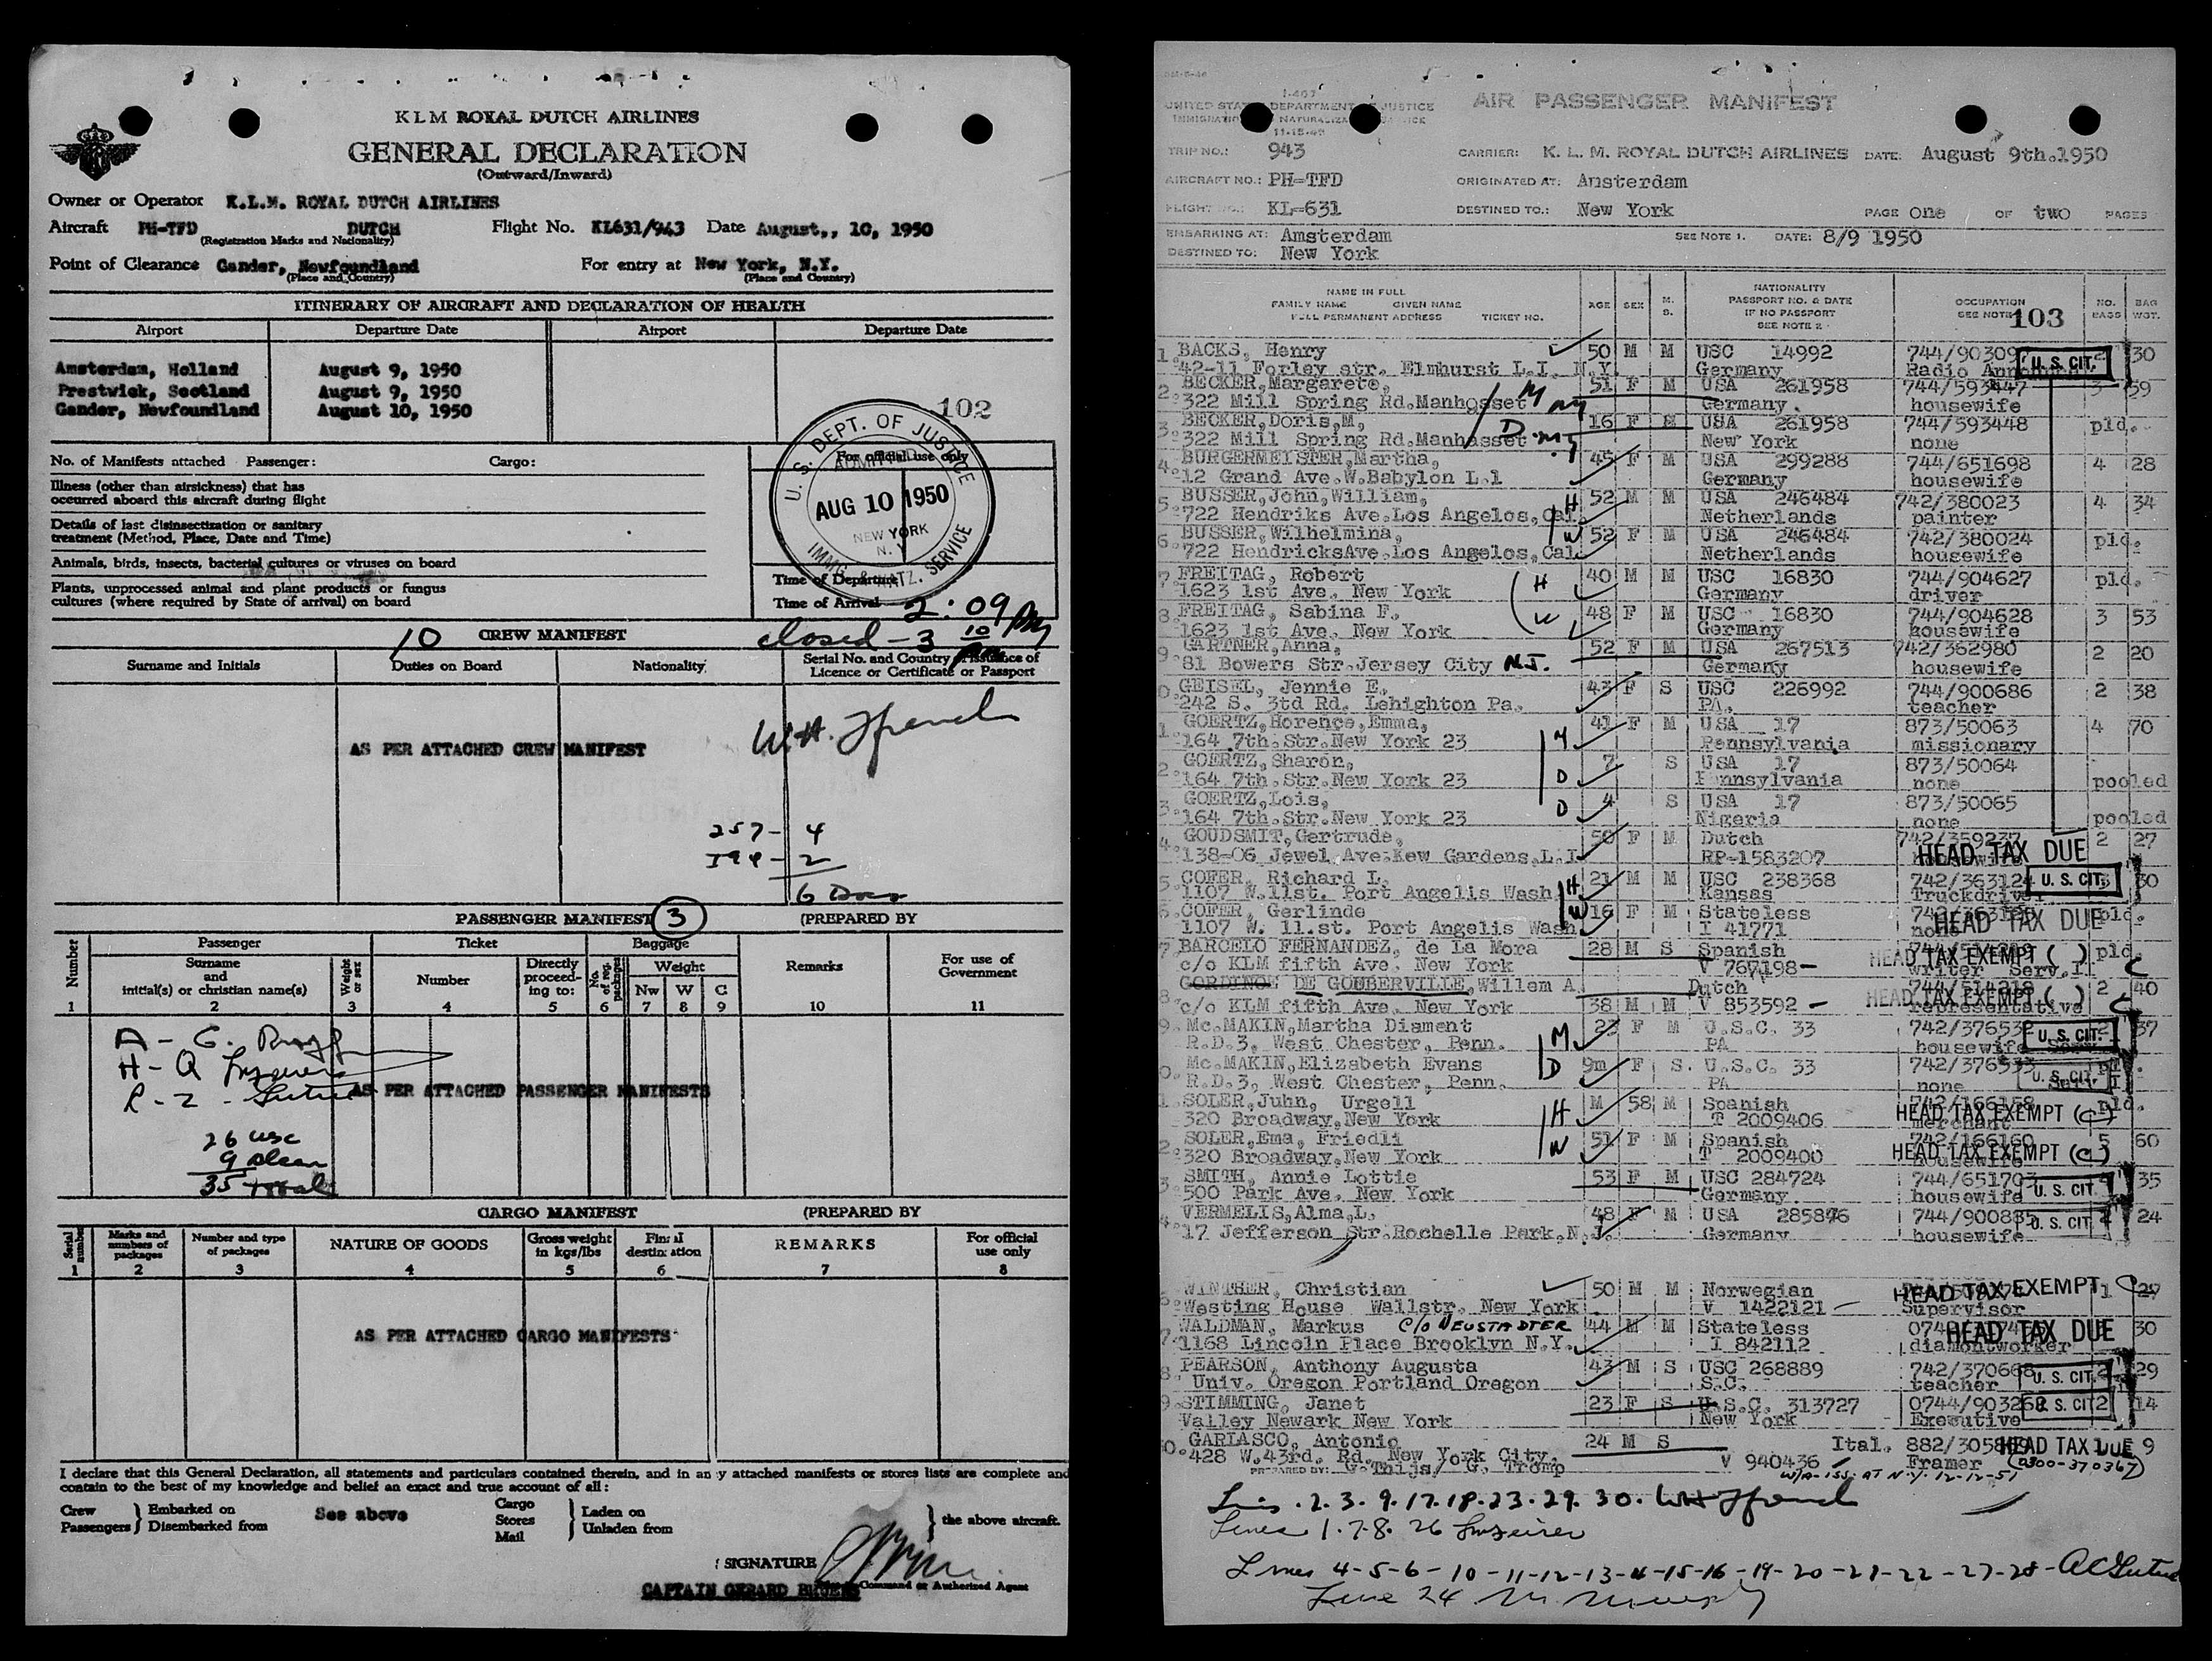 KLM ROYAL DUTCH AIRLINES
GENERAL DECLARATION
(Outward/Inward)
Owner or Operator K.L.M. ROYAL DUTCH AIRLINES
Aircraft PH-TFD DUTCH Flight No. KL631/943 Date August,, 10, 1950
(Registration Marks and Nationality)
Point of Clearance Gander, Newfoundland For entry at New York, N.Y.
(Place and Country) (Place and Country)
ITINERARY OF AIRCRAFT AND DECLARATION OF HEALTH
Airport Departure Date Airport Departure Date
Amsterdam, Holland August 9, 1950
Prestwick, Scotland August 9, 1950
Gander, Newfoundland August 10, 1950
102
No. of Manifests attached Passenger: Cargo:
For official use only
Illness (other than airsickness) that has
occurred aboard this aircraft during flight
Details of last disinsectization or sanitary
treatment (Method, Place, Date and Time)
Animals, birds, insects, bacterial cultures or viruses on board
Plants, unprocessed animal and plant products or fungus
cultures (where required by State of arrival) on board
U. S. DEPT. OF JUSTICE
ADMITTED
AUG 10 1950
NEW YORK
N. Y.
IMMG. & NATZ. SERVICE
Time of Departure
Time of Arrival 2:09 PM
closed - 3 10 PM
10 CREW MANIFEST
Surname and Initials Duties on Board Nationality Serial No. and Country of Issuance of
Licence or Certificate or Passport
AS PER ATTACHED CREW MANIFEST
257- 4
I94- 2
6
PASSENGER MANIFEST 3 (PREPARED BY
Number Passenger Ticket Baggage Remarks For use of
Government
Surname
and
initial(s) or christian name(s)
Weight or sex
Number
Directly proceeding to:
No. of reg. packages
Weight
Nw W C
1 2 3 4 5 6 7 8 9 10 11
AS PER ATTACHED PASSENGER MANIFESTS
26 USC
9 alien
35 total
CARGO MANIFEST (PREPARED BY
Serial number
Marks and numbers of packages
Number and type of packages
NATURE OF GOODS
Gross weight in kgs/lbs
Final destination
REMARKS
For official use only
1 2 3 4 5 6 7 8
AS PER ATTACHED CARGO MANIFESTS
I declare that this General Declaration, all statements and particulars contained therein, and in any attached manifests or stores lists are complete and
contain to the best of my knowledge and belief an exact and true account of all:
Crew Embarked on See above Cargo Laden on the above aircraft.
Passengers Disembarked from Stores Unladen from
Mail
SIGNATURE
Command or Authorized Agent
CAPTAIN GERARD
I-407
UNITED STATES DEPARTMENT OF JUSTICE
11-15-49
AIR PASSENGER MANIFEST
TRIP NO.: 943 CARRIER: K. L. M. ROYAL DUTCH AIRLINES DATE: August 9th.1950
AIRCRAFT NO.: PH-TFD ORIGINATED AT: Amsterdam
FLIGHT NO.: KL-631 DESTINED TO.: New York PAGE one OF two PAGES
EMBARKING AT: Amsterdam SEE NOTE 1. DATE: 8/9 1950
DESTINED TO: New York
NAME IN FULL
FAMILY NAME GIVEN NAME
FULL PERMANENT ADDRESS TICKET NO.
AGE SEX M. S.
NATIONALITY
PASSPORT NO. & DATE
IF NO PASSPORT
SEE NOTE 2
OCCUPATION
SEE NOTE
103
NO. BAGS BAG WGT.
1. BACKS, Henry 50 M M USC 14992 744/90309 U. S. CIT. 30
42-11 Forley str. Elmhurst L.I. N.Y. Germany Radio
2. BECKER,Margarete, 51 F M USA 261958 744/593447 3 59
322 Mill Spring Rd.Manhosset Germany. housewife
3. BECKER,Doris,M, 16 F S USA 261958 744/593448 pld.
322 Mill Spring Rd.Manhasset New York none
4. BURGERMEISTER,Martha, 45 F M USA 299288 744/651698 4 28
12 Grand Ave.W.Babylon L.I Germany housewife
5. BUSSER,John,William, H 52 M M USA 246484 742/380023 4 34
722 Hendriks Ave.Los Angelos,Cal. Netherlands painter
6. BUSSER,Wilhelmina, W 52 F M USA 246484 742/380024 pld.
722 HendricksAve.Los Angelos,Cal. Netherlands housewife
7. FREITAG, Robert H 40 M M USC 16830 744/904627 pld.
1623 1st Ave. New York Germany driver
8. FREITAG, Sabina F. W 48 F M USC 16830 744/904628 3 53
1623 1st Ave. New York Germany housewife
9. GARTNER,Anna, 52 F M USA 267513 742/362980 2 20
81 Bowers Str.Jersey City N.J. Germany housewife
0. GEISEL, Jennie E. 43 F S USC 226992 744/900686 2 38
242 S. 3td Rd. Lehighton Pa. PA. teacher
1. GOERTZ,Horence,Emma, M 41 F M USA 17 873/50063 4 70
164 7th.Str.New York 23 Pennsylvania missionary
2. GOERTZ,Sharon, D 7 S USA 17 873/50064
164 7th.Str.New York 23 Pennsylvania none pooled
3. GOERTZ,Lois, D 4 S USA 17 873/50065
164 7th.Str.New York 23 Nigeria none pooled
4. GOUDSMIT,Gertrude, 50 F M Dutch 742/359237 2 27
138-06 Jewel Ave.Kew Gardens,L.I. RP-1583207 HEAD TAX DUE
5. COFER, Richard L. H 21 M M USC 238368 742/363124 U. S. CIT. 30
1107 W.11st. Port Angelis Wash. Kansas Truckdriver
6. COFER, Gerlinde W 16 F M Stateless HEAD TAX DUE pld.
1107 W. 11.st. Port Angelis Wash. I 41771 none
7. BARCELO FERNANDEZ, de La Mora 28 M S Spanish HEAD TAX EXEMPT ( ) pld.
c/o KLM fifth Ave. New York V 767198 writer
8. GORDINOE DE GOUBERVILLE,Willem A. Dutch 744/514218 2 40
c/o KLM fifth Ave. New York 38 M M V 853592 HEAD TAX EXEMPT ( ) representative
9. Mc.MAKIN,Martha Disment M F M U.S.C. 33 742/376532 U. S. CIT. 37
R.D.3, West Chester, Penn. PA housewife
0. Mc.MAKIN,Elizabeth Evans D 9m F S. U.S.C. 33 742/376533 U. S. CIT.
R.D.3, West Chester, Penn. PA none
1. SOLER,Juhn, Urgell H M 58 M Spanish 742/166158 pld.
320 Broadway,New York T 2009406 HEAD TAX EXEMPT (C) merchant
2. SOLER,Ema, Friedli W 51 F M Spanish 742/166160 5 60
320 Broadway,New York T 2009400 HEAD TAX EXEMPT (C) housewife
3. SMITH, Annie Lottie 53 F M USC 284724 744/651703 U. S. CIT. 35
500 Park Ave. New York Germany. housewife
4. VERMELIS,Alma,L. 48 F M USA 285876 744/900885 U. S. CIT. 24
17 Jefferson Str.Rochelle Park.N.J. Germany housewife
WINTHER, Christian 50 M M Norwegian HEAD TAX EXEMPT C 1 27
Westing House Wallstr. New York. V 1422121 Supervisor
WALDMAN, Markus c/o NEUSTADTER 44 M M Stateless HEAD TAX DUE 30
1168 Lincoln Place Brooklyn N.Y. I 842112 diamontworker
8. PEARSON, Anthony Augusta 43 M S USC 268889 742/370668 U. S. CIT. 29
Univ. Oregon Portland Oregon S.C. teacher
9. STIMMING, Janet 23 F S U.S.C. 313727 0744/903268 U. S. CIT. 2 14
Valley Newark New York New York Executive
0. GARLASCO, Antonio 24 M S Ital. 882/305889 HEAD TAX DUE 9
428 W.43rd. Rd. New York City. V 940436 Framer (0300-370367)
PREPARED BY: G.Thijs/ G. Tromp W/A-ISS. AT N.Y. 12-12-51
2. 3. 9. 17. 18. 23. 29. 30.
Lines 1. 7-8. 26
Lines 4-5-6-10-11-12-13-14-15-16-19-20-21-22-27-28-
Line 24